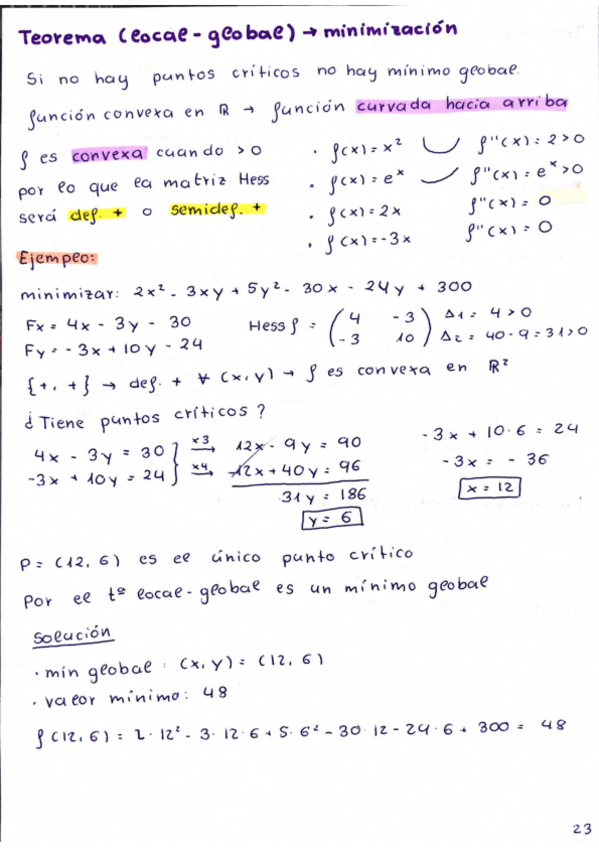 Teorema (local - global) → minimización
Si no hay puntos críticos no hay mínimo global.
función convexa en ℝ → función curvada hacia arriba
f es convexa cuando > 0
por lo que la matriz Hess
será def. + o semidef. +
· f(x) = x² f''(x) = 2 > 0
· f(x) = eˣ f''(x) = eˣ > 0
· f(x) = 2x f''(x) = 0
· f(x) = -3x f''(x) = 0
Ejemplo:
minimizar: 2x² - 3xy + 5y² - 30x - 24y + 300
Fx = 4x - 3y - 30
Fy = -3x + 10y - 24
Hess f = ( 4 -3 ) Δ1 = 4 > 0
( -3 10 ) Δ2 = 40 - 9 = 31 > 0
{+, +} → def. + ∀ (x, y) → f es convexa en ℝ²
¿Tiene puntos críticos?
4x - 3y = 30 } x3 → 12x - 9y = 90
-3x + 10y = 24 } x4 → -12x + 40y = 96
31y = 186
y = 6
-3x + 10·6 = 24
-3x = -36
x = 12
P = (12, 6) es el único punto crítico
Por el tº local-global es un mínimo global
solución
· min global: (x, y) = (12, 6)
· valor mínimo: 48
f(12, 6) = 2·12² - 3·12·6 + 5·6² - 30·12 - 24·6 + 300 = 48
23